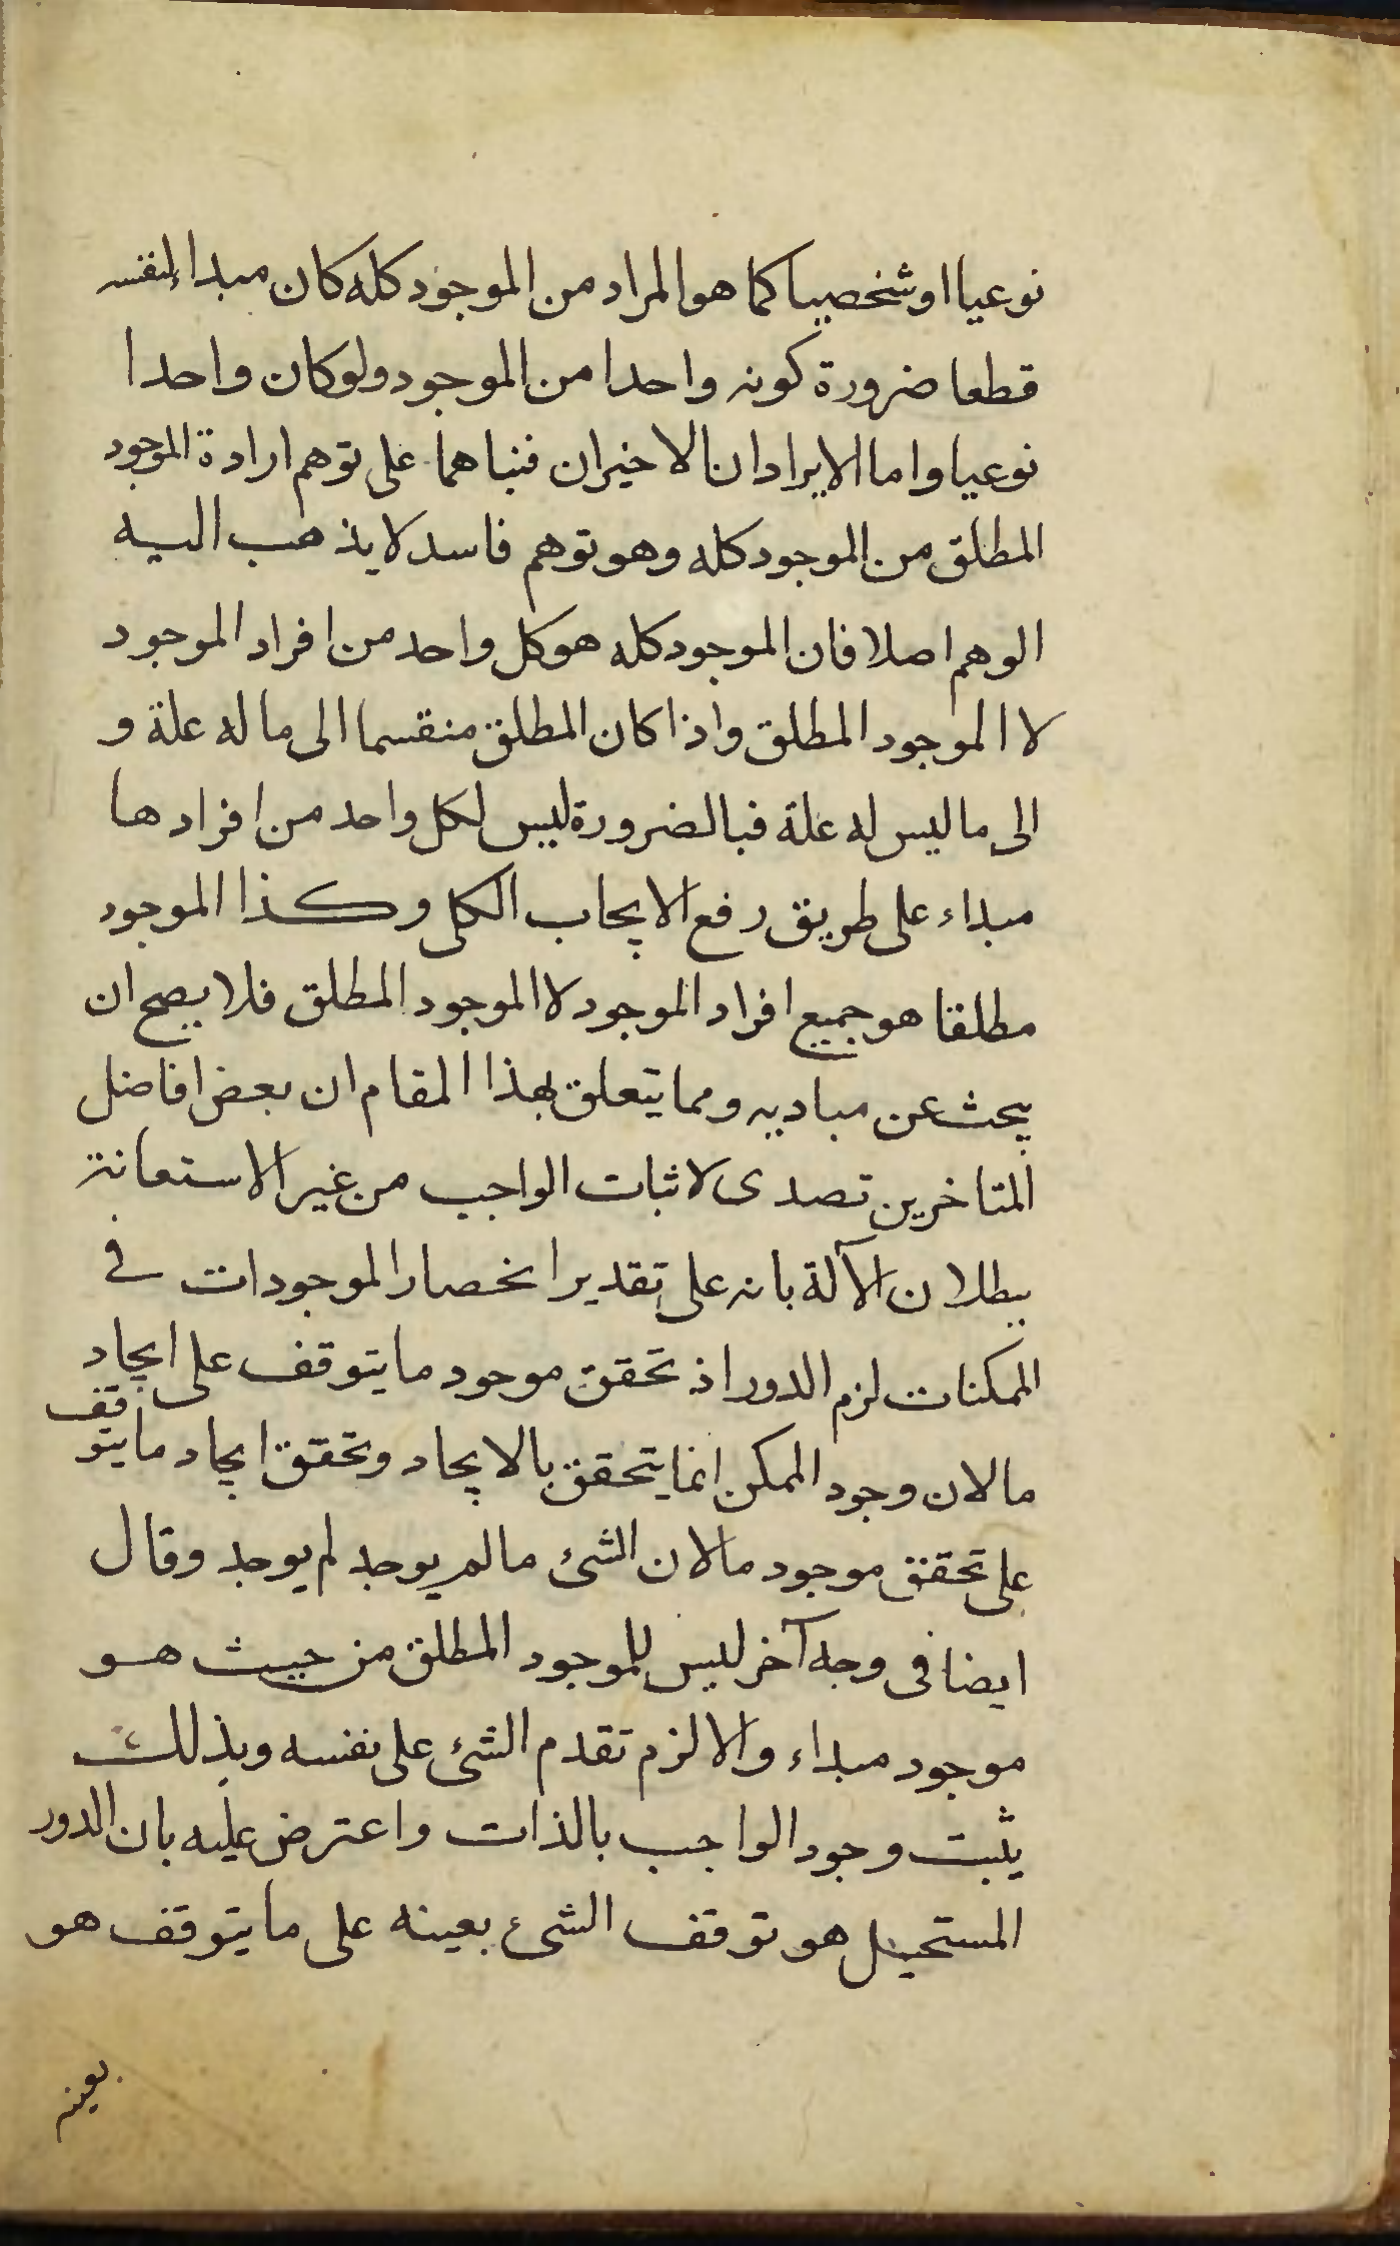 نوعيا او شخصيا كما هو المراد من الموجود كله كان مبداء لنفسه
قطعا ضرورة كونه واحدا من الموجود ولو كان واحدا
نوعيا واما الايرادان الاخيران فبناهما على توهم ارادة الموجود
المطلق من الموجود كله وهو توهم فاسد لا يذهب اليه
الوهم اصلا فان الموجود كله هو كل واحد من افراد الموجود
لا الموجود المطلق واذا كان المطلق منقسما الى ما له علة و
الى ما ليس له علة فبالضرورة ليس لكل واحد من افرادها
مبداء على طريق رفع الايجاب الكلى وكذا الموجود
مطلقا هو جميع افراد الموجود لا الموجود المطلق فلا يصح ان
يبحث عن مباديه ومما يتعلق بهذا المقام ان بعض افاضل
المتاخرين تصدى لاثبات الواجب من غير الاستعانة
ببطلان الآلة بانه على تقدير انحصار الموجودات فى
الممكنات لزم الدور اذ تحقق موجود ما يتوقف على ايجاد
ما لان وجود الممكن انما يتحقق بالايجاد وتحقق ايجاد ما يتوقف
على تحقق موجود ما لان الشئ ما لم يوجد لم يوجد وقال
ايضا فى وجه آخر ليس للموجود المطلق من حيث هو
موجود مبداء والا لزم تقدم الشئ على نفسه وبذلك
يثبت وجود الواجب بالذات واعترض عليه بان الدور
المستحيل هو توقف الشئ بعينه على ما يتوقف هو
بعينه